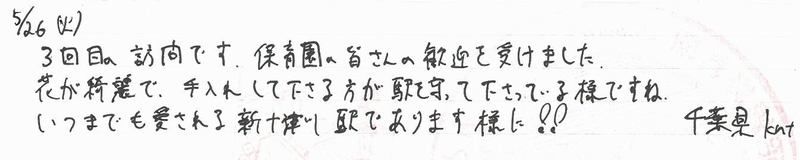 5/26 (火)
3回目の訪問です。保育園の皆さんの歓迎を受けました。
花が綺麗で、手入れして下さる方が駅を守って下さっている様ですね。
いつまでも愛される新十津川駅であります様に!! 千葉県 knt